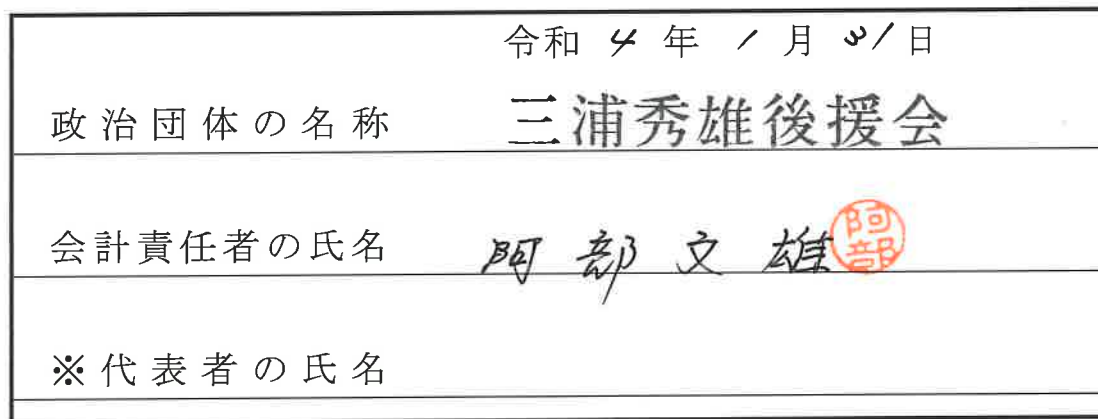 令和 4 年 1 月 31 日
政治団体の名称 三浦秀雄後援会
会計責任者の氏名 阿部文雄 阿部
※代表者の氏名